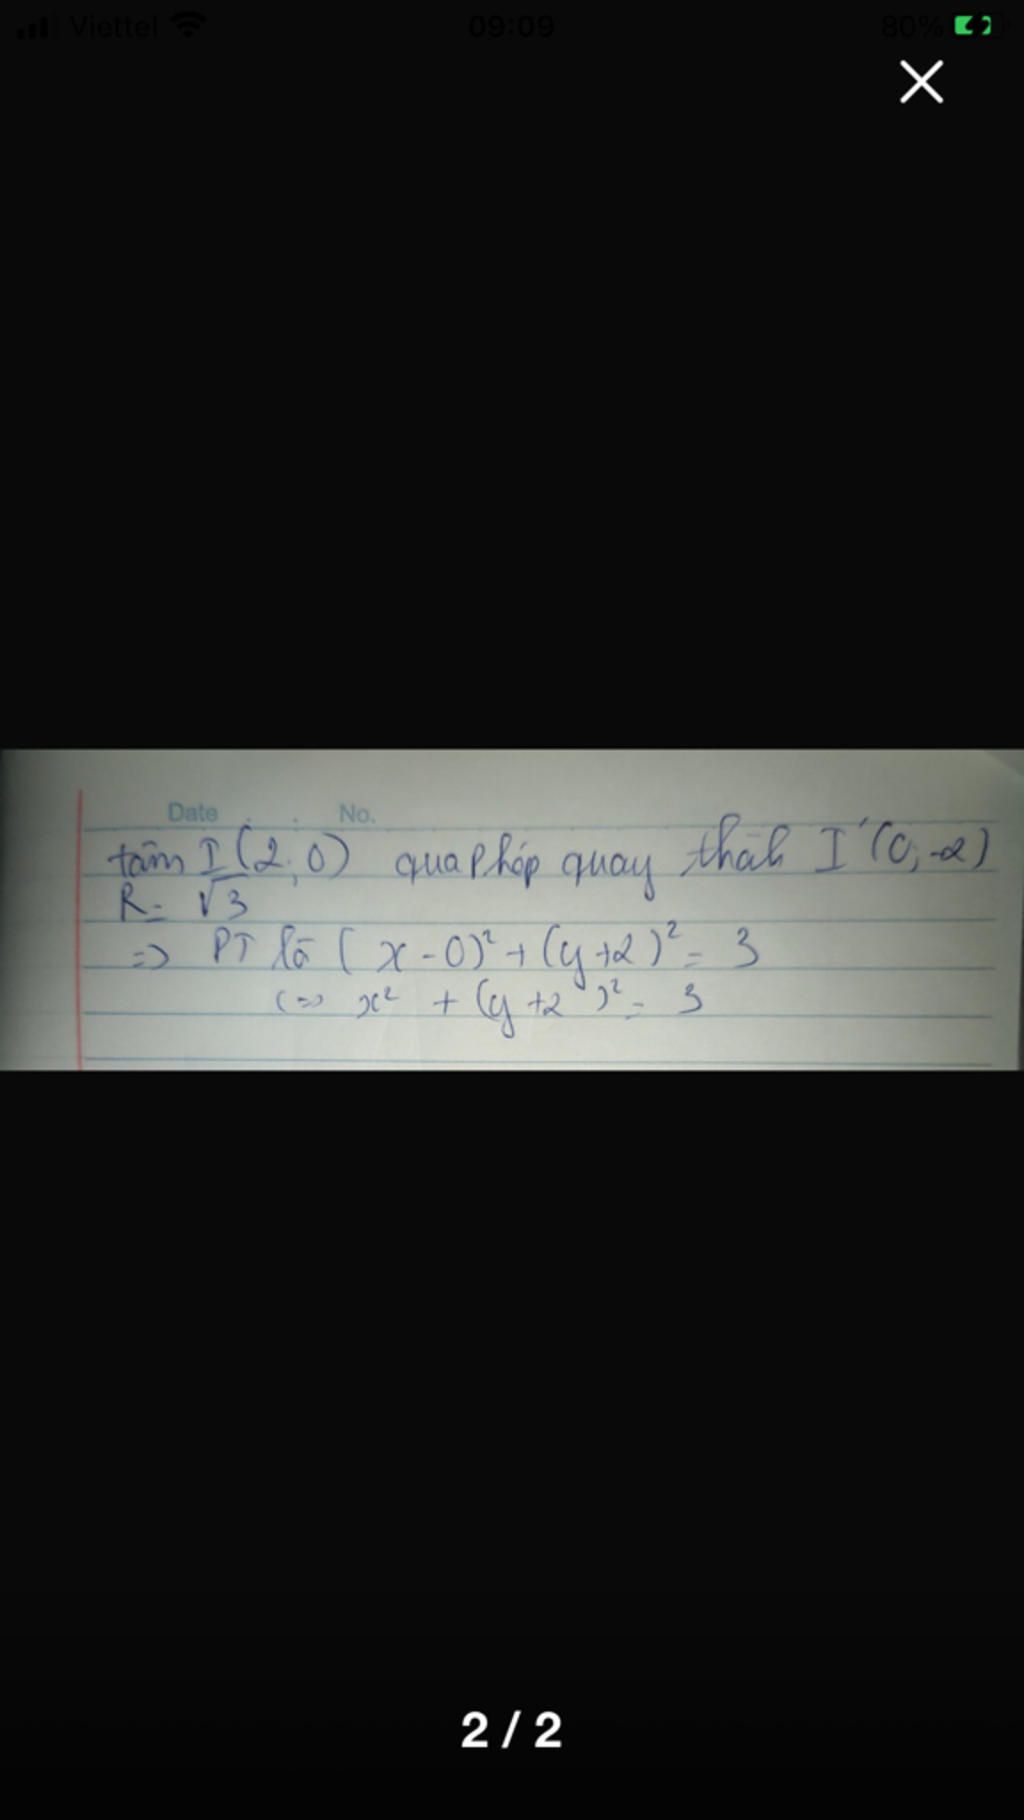 Viettel 09:09 80%
Date No.
tâm I(2;0) qua phép quay thành I'(0;-2)
R = √3
=> PT là (x-0)² + (y+2)² = 3
<=> x² + (y+2)² = 3
2 / 2